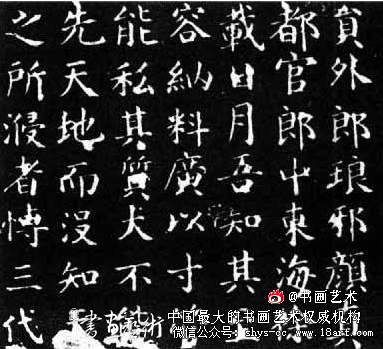 員外郎琅邪顏
都官郎中東海
載日月吾知其
容納料廣以寸
能私其質犬不能
先天地而沒知
之所浸者博三代
@书画艺术
中国最大的书画艺术权威机构
微信公众号:shys-cc,www.18art.